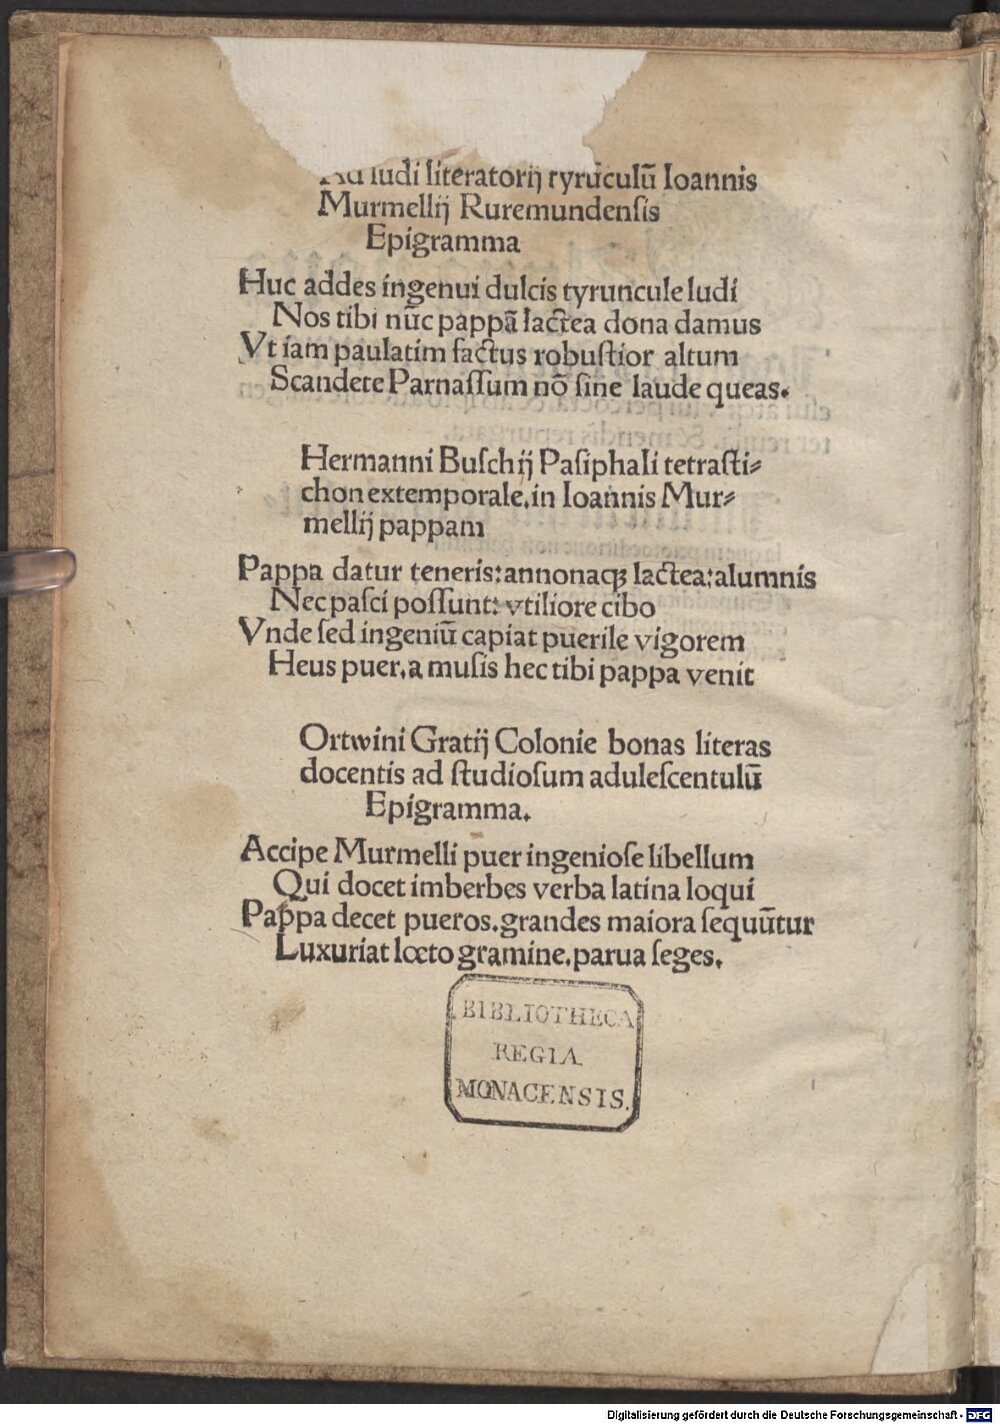 Ad ludi literatorij tyrũculũ Ioannis
Murmellij Ruremundenſis
Epigramma
Huc addes ingenui dulcis tyruncule ludi
Nos tibi nũc pappã lactea dona damus
Vt iam paulatim factus robuſtior altum
Scandere Parnaſſum nõ ſine laude queas.
Hermanni Buſchij Paſiphali tetraſti⸗
chon extemporale, in Ioannis Mur⸗
mellij pappam
Pappa datur teneris: annonaqꝫ lactea: alumnis
Nec paſci poſſunt: vtiliore cibo
Vnde ſed ingeniũ capiat puerile vigorem
Heus puer, a muſis hec tibi pappa venit
Ortwini Gratij Colonie bonas literas
docentis ad ſtudioſum aduleſcentulũ
Epigramma.
Accipe Murmelli puer ingenioſe libellum
Qui docet imberbes verba latina loqui
Pappa decet pueros. grandes maiora ſequũtur
Luxuriat lœto gramine. parua ſeges.
BIBLIOTHECA
REGIA
MONACENSIS.
Digitalisierung gefördert durch die Deutsche Forschungsgemeinschaft - DFG